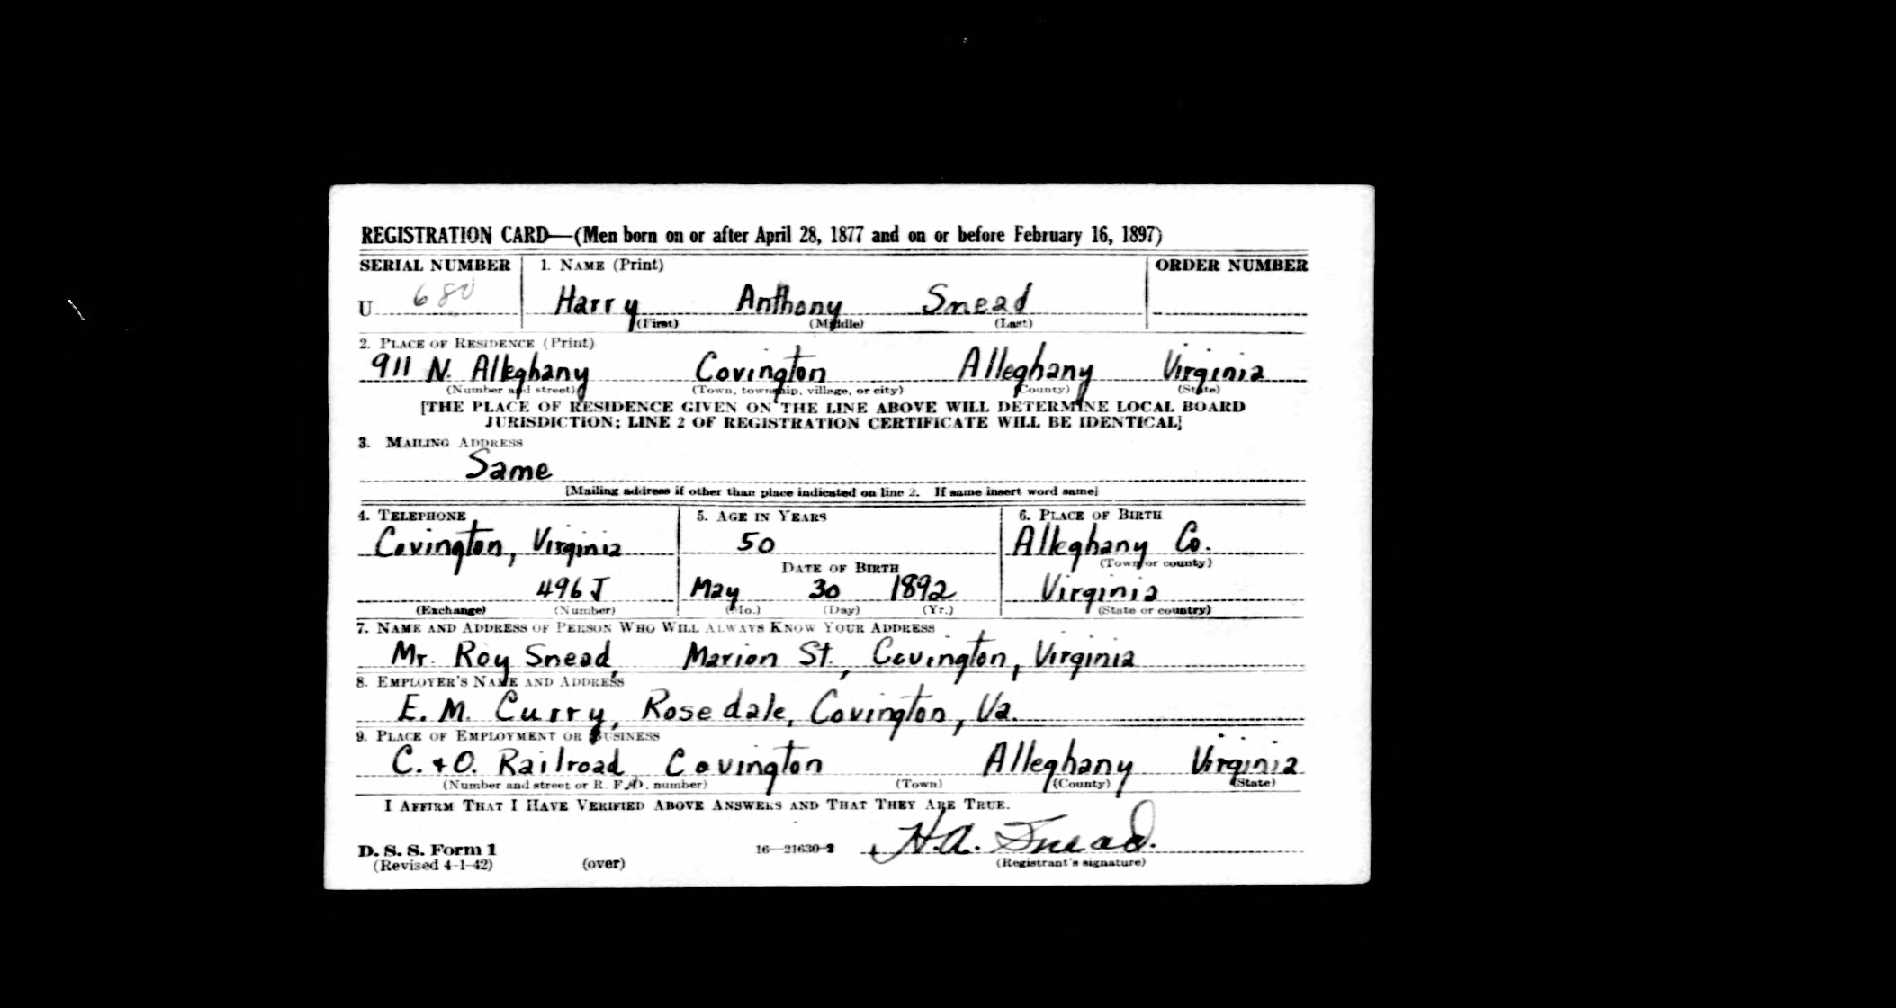 REGISTRATION CARD—(Men born on or after April 28, 1877 and on or before February 16, 1897)
SERIAL NUMBER 1. NAME (Print) ORDER NUMBER
U 680 Harry Anthony Snead
(First) (Middle) (Last)
2. PLACE OF RESIDENCE (Print)
911 N. Alleghany Covington Alleghany Virginia
(Number and street) (Town, township, village, or city) (County) (State)
[THE PLACE OF RESIDENCE GIVEN ON THE LINE ABOVE WILL DETERMINE LOCAL BOARD
JURISDICTION; LINE 2 OF REGISTRATION CERTIFICATE WILL BE IDENTICAL]
3. MAILING ADDRESS
Same
[Mailing address if other than place indicated on line 2. If same insert word same]
4. TELEPHONE 5. AGE IN YEARS 6. PLACE OF BIRTH
Covington, Virginia 50 Alleghany Co.
DATE OF BIRTH (Town or county)
496 J May 30 1892 Virginia
(Exchange) (Number) (Mo.) (Day) (Yr.) (State or country)
7. NAME AND ADDRESS OF PERSON WHO WILL ALWAYS KNOW YOUR ADDRESS
Mr. Roy Snead, Marion St., Covington, Virginia
8. EMPLOYER'S NAME AND ADDRESS
E. M. Curry, Rosedale, Covington, Va.
9. PLACE OF EMPLOYMENT OR BUSINESS
C. + O. Railroad, Covington Alleghany Virginia
(Number and street or R. F. D. number) (Town) (County) (State)
I AFFIRM THAT I HAVE VERIFIED ABOVE ANSWERS AND THAT THEY ARE TRUE.
H. A. Snead.
D. S. S. Form 1 16—21630-2
(Revised 4-1-42) (over) (Registrant's signature)